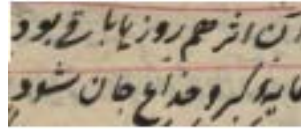 آن اثر هم روز یا باقی بود
مایهٔ کبر و خداع جان شود